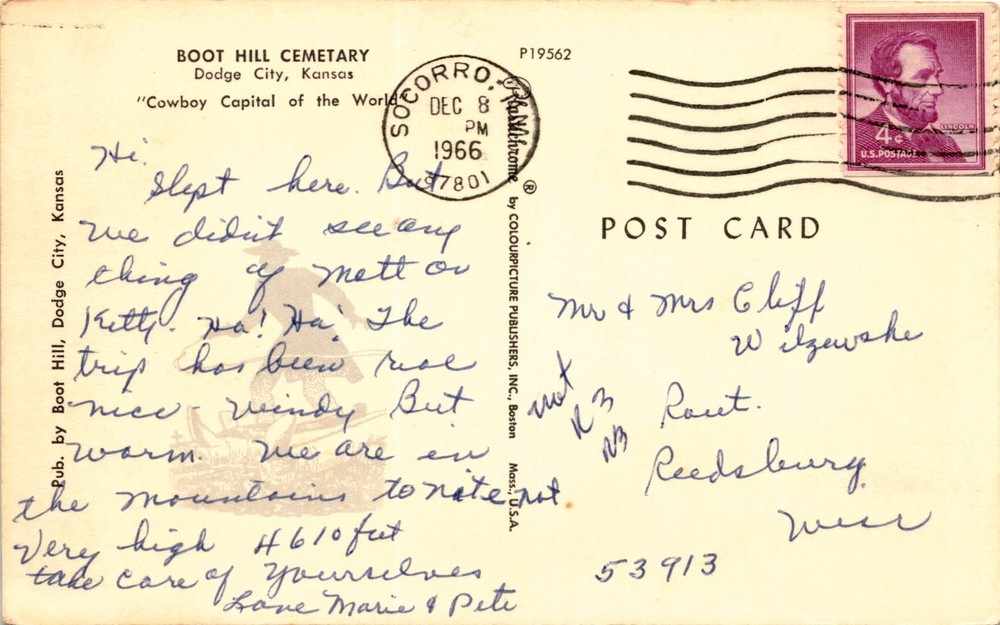 BOOT HILL CEMETARY
Dodge City, Kansas
"Cowboy Capital of the World"
P19562
SOCORRO, N.M.
DEC 8
PM
1966
87801
LINCOLN
4¢
U.S.POSTAGE
Pub. by Boot Hill, Dodge City, Kansas
Plastichrome ® by COLOURPICTURE PUBLISHERS, INC., Boston Mass., U.S.A.
POST CARD
Hi.
Slept here. But
we didn't see any
thing of Matt or
Kitty. Ha! Ha! The
trip has been real
nice windy But
warm. We are in
the mountains tonite not
Very high 4610 feet
take care of Yourselves
Love Marie & Pete
Mr & Mrs Cliff
Rout.
Reedsburg
Wisc
53913
not
R 3